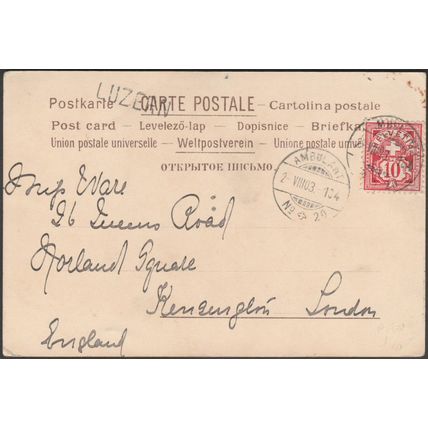 LUZERN
Postkarte — CARTE POSTALE — Cartolina postale
Post card — Levelező-lap — Dopisnice — Briefka
Union postale universelle — Weltpostverein — Unione postale univers
ОТКРЫТОЕ ПИСЬМО
AMBULANT
2. VIII 03. 104
No 20
HELVETIA
10
Miss E Vare
26 Queens Road
Norland Square
Kensington London
England